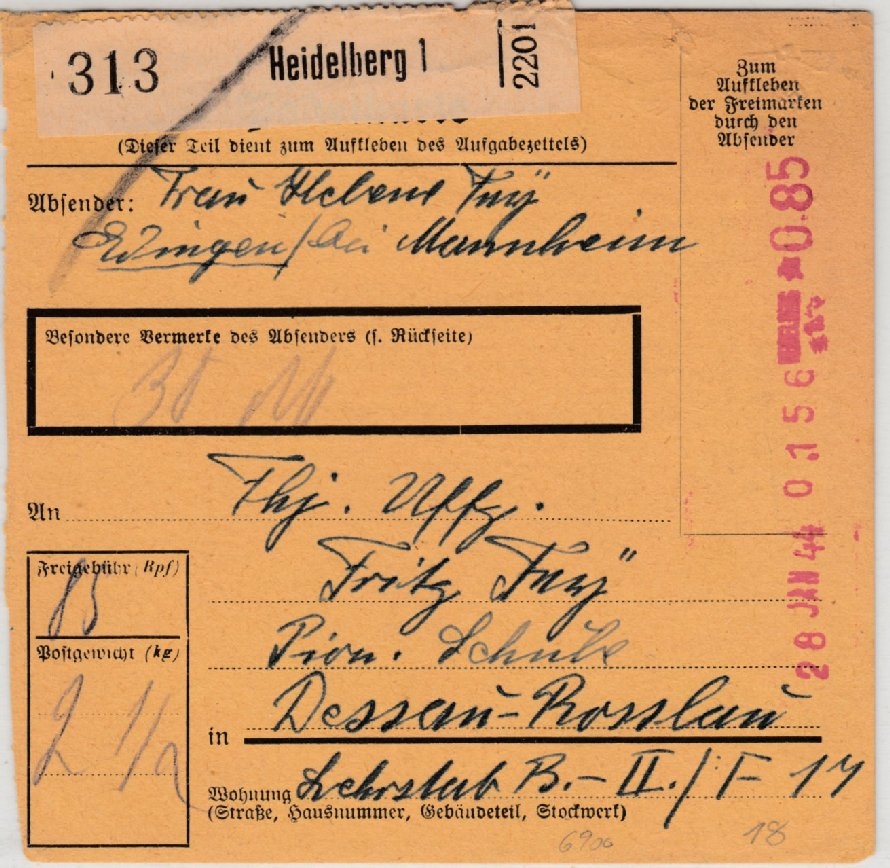 313 Heidelberg 1 2201
(Dieser Teil dient zum Aufkleben des Aufgabezettels)
Zum
Aufkleben
der Freimarken
durch den
Absender
Absender: Frau Helene Fuÿ
Edingen/bei Mannheim
Besondere Vermerke des Absenders (s. Rückseite)
0.85
0156
28 JAN 44
An Fhj. Uffz.
Fritz Fuÿ
Pion. Schule
in Dessau-Rosslau
Wohnung Lehrstab B.-II./F 17
(Straße, Hausnummer, Gebäudeteil, Stockwerk)
Freigebühr (Rpf)
85
Postgewicht (kg)
2 1/2
6900
18